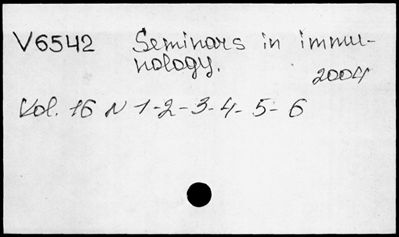 V6542 Seminars in immu-
nology.
2004
Vol. 16 N 1-2-3-4-5-6